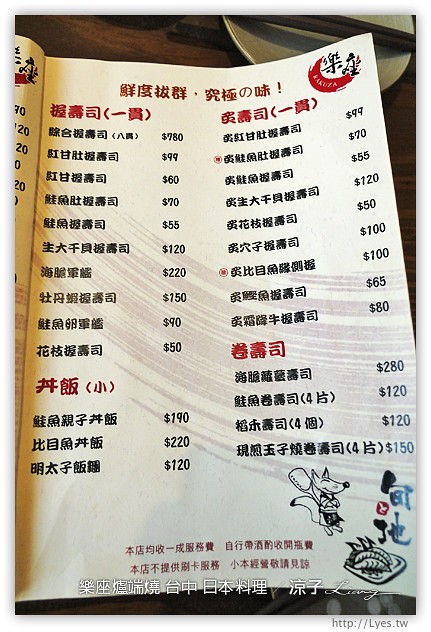 樂座
RAKUZA
鮮度拔群．究極の味！
握壽司(一貫)
綜合握壽司(八貫) $780
紅甘肚握壽司 $99
紅甘握壽司 $60
鮭魚肚握壽司 $70
鮭魚握壽司 $55
生大干貝握壽司 $120
海膽軍艦 $220
牡丹蝦握壽司 $150
鮭魚卵軍艦 $90
花枝握壽司 $50
丼飯(小)
鮭魚親子丼飯 $190
比目魚丼飯 $220
明太子飯糰 $120
炙壽司(一貫)
炙紅甘肚握壽司 $99
炙鮭魚肚握壽司 $70
炙鮭魚握壽司 $55
炙生大干貝握壽司 $120
炙花枝握壽司 $50
炙穴子握壽司 $100
炙比目魚緣側握 $100
炙鰹魚握壽司 $65
炙霜降牛握壽司 $80
卷壽司
海膽蘿蔓壽司 $280
鮭魚卷壽司(4片) $120
稻禾壽司(4個) $120
現煎玉子燒卷壽司(4片) $150
旬の地
本店均收一成服務費 自行帶酒酌收開瓶費
本店不提供刷卡服務 小本經營敬請見諒
樂座爐端燒 台中 日本料理 涼子 Liang
http://Lyes.tw